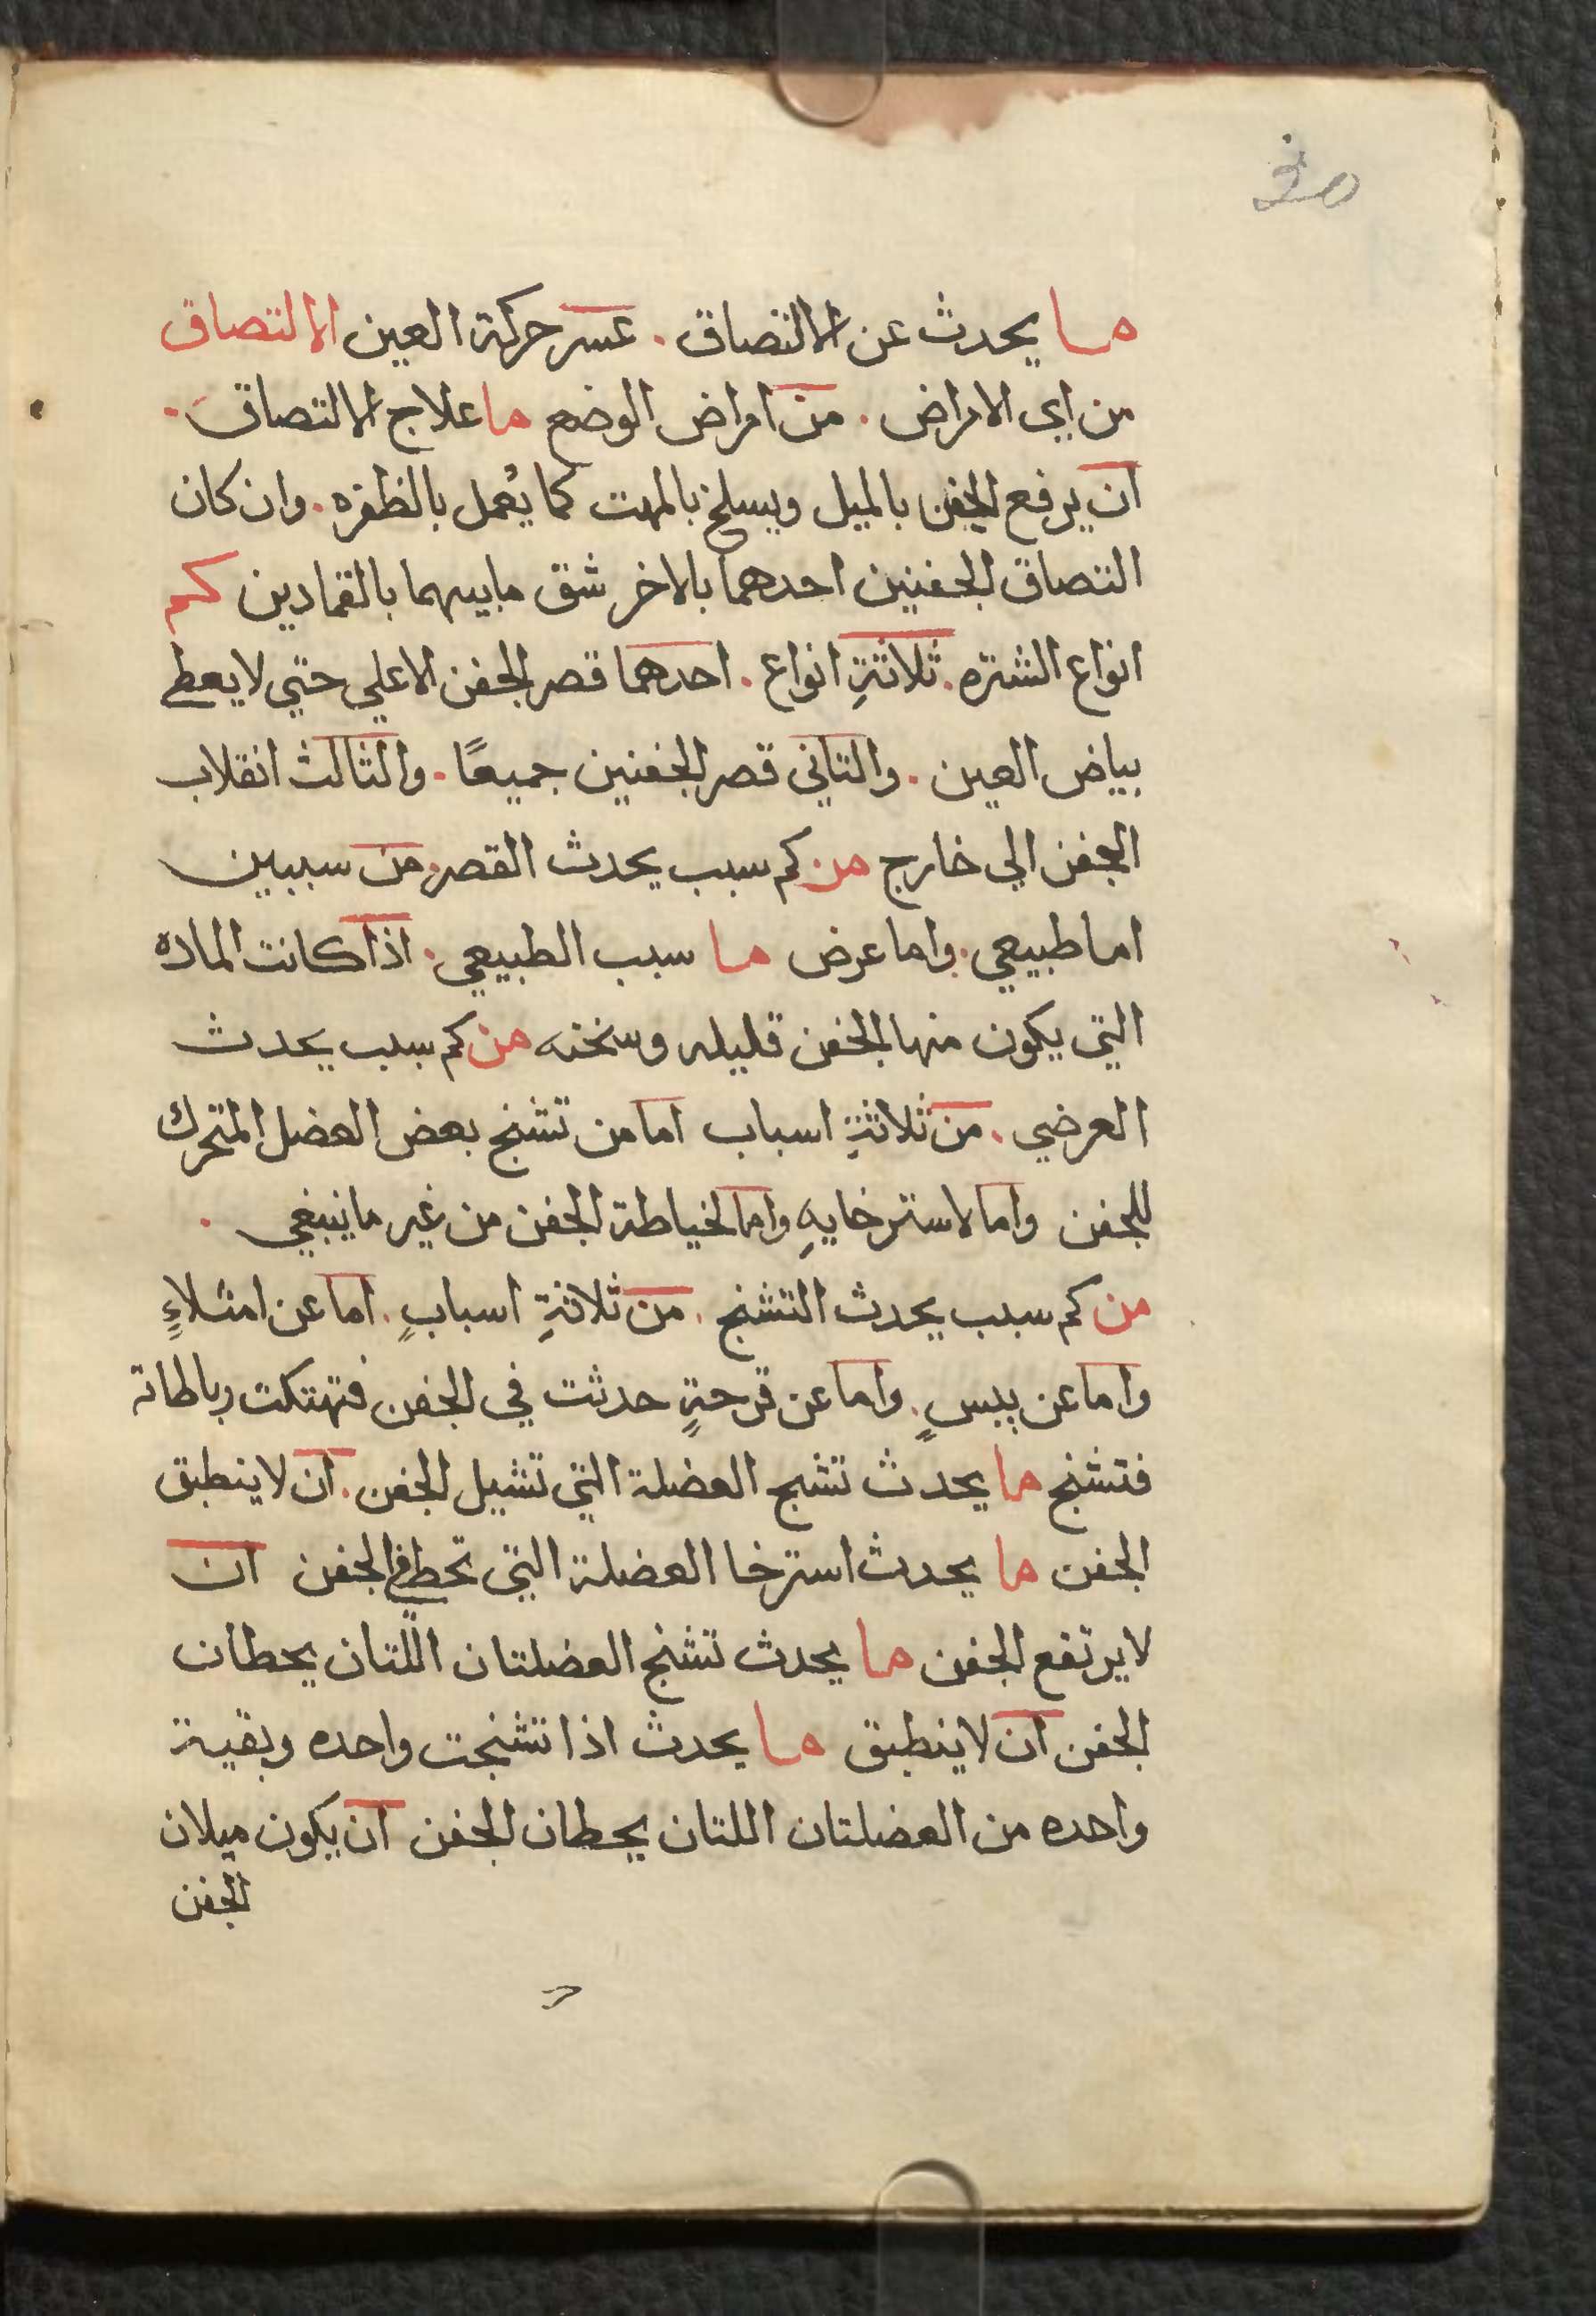 30
ما يحدث عن الالتصاق . عسر حركة العين الالتصاق
من اي الامراض . من امراض الوضع ما علاج الالتصاق .
ان يرفع الجفن بالميل ويسلخ بالمهت كما يُعمل بالظفره . وان كان
التصاق الجفنين احدهما بالاخر شق مابينهما بالقمادين كم
انواع الشتره . ثلاثةِ انواع . احدهما قصر الجفن الاعلي حتي لا يعطي
بياض العين . والثاني قصر الجفنين جميعًا . والثالث انقلاب
الجفن الي خارج من كم سبب يحدث القصر . من سببين
اما طبيعي . واما عرض ما سبب الطبيعي . اذا كانت الماده
التي يكون منها الجفن قليله وسخنه من كم سبب يحدث
العرضي . من ثلاثةِ اسباب اما من تشنج بعض العضل المتحرك
للجفن واما لاسترخايهِ واما لخياطة الجفن من غير ماينبغي .
من كم سبب يحدث التشنج . من ثلاثةِ اسبابٍ . اما عن امتلاءٍ
واما عن يبسٍ . واما عن قرحةٍ حدثت في الجفن فتهتكت رباطاته
فتشنج ما يحدث تشنج العضلة التي تشيل الجفن . ان لاينطبق
الجفن ما يحدث استرخا العضلة التي تحط في الجفن ان
لايرتفع الجفن ما يحدث تشنج العضلتان اللّتان يحطان
الجفن ان لاينطبق ما يحدث اذا تشنجت واحده وبقية
واحده من العضلتان اللتان يحطان الجفن ان يكون ميلان
الجفن